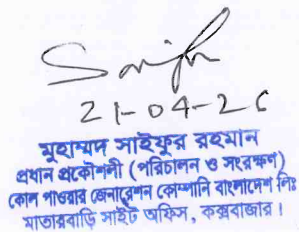 21-04-26
মুহাম্মদ সাইফুর রহমান
প্রধান প্রকৌশলী (পরিচালন ও সংরক্ষণ)
কোল পাওয়ার জেনারেশন কোম্পানি বাংলাদেশ লিঃ
মাতারবাড়ি সাইট অফিস, কক্সবাজার।